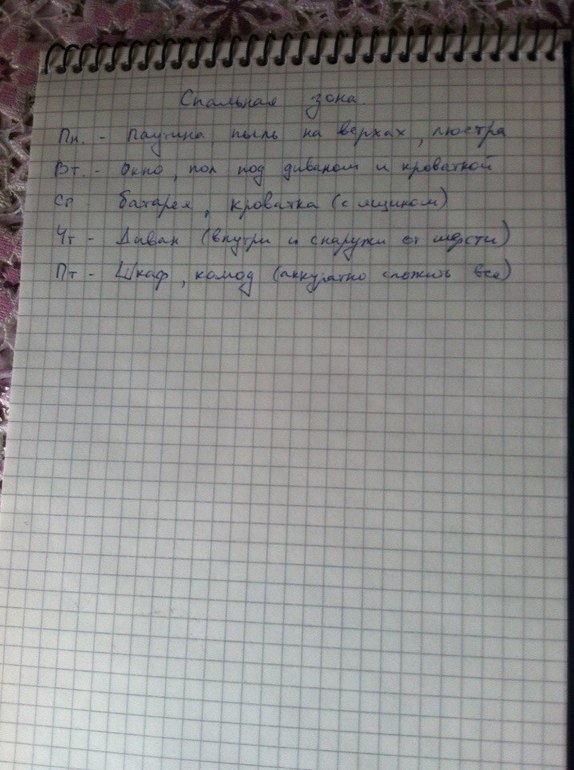 Спальная зона.
Пн. - Паутина, пыль на верхах, люстра
Вт. - Окно, пол под диваном и кроваткой
Ср - батарея, кроватка (с ящиком)
Чт - Диван (внутри и снаружи от шерсти)
Пт - Шкаф, комод (аккуратно сложить все)